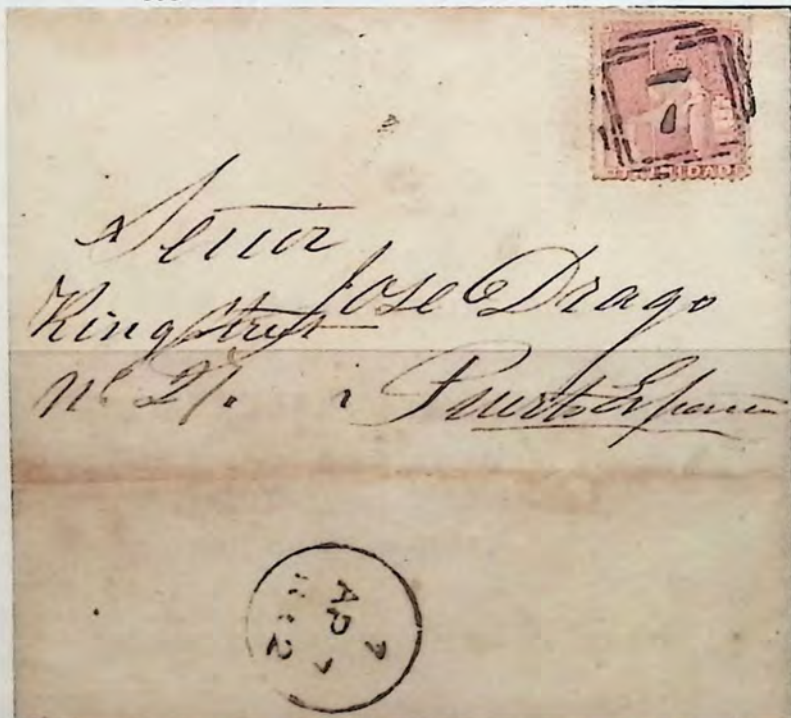 7
TRINIDAD
Señor
Jose Drago
King Street
Nº 27. Puerto España
7
AP 7